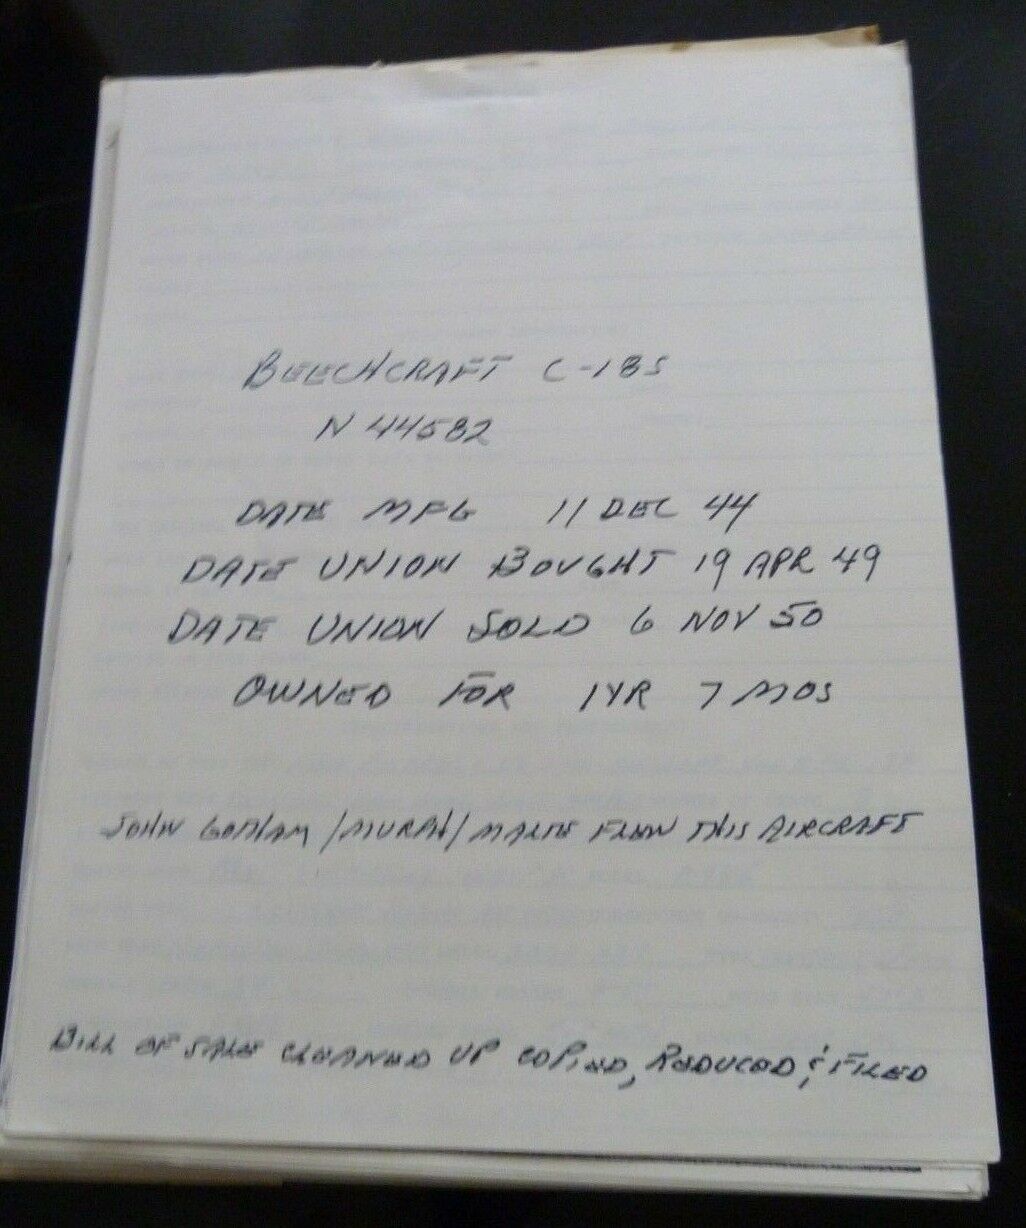 BEECHCRAFT C-18S
N 44582
DATE MFG 11 DEC 44
DATE UNION BOUGHT 19 APR 49
DATE UNION SOLD 6 NOV 50
OWNED FOR 1YR 7 MOS
JOHN / / FLEW THIS AIRCRAFT
BILL OF SALE CLEANED UP COPIED, REDUCED, & FILED